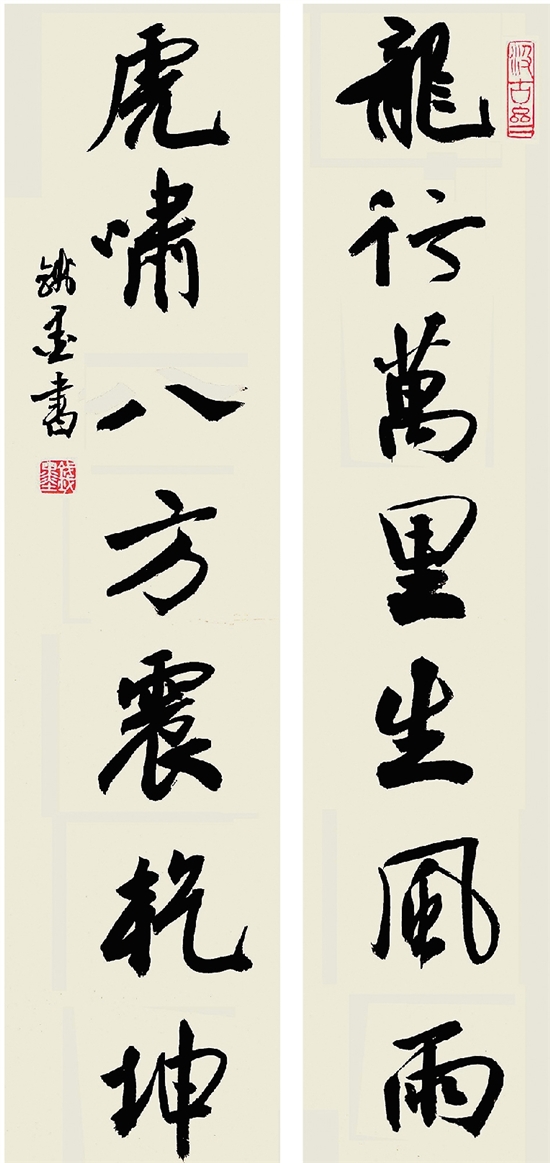 龍行萬里生風雨
虎嘯八方震乾坤
墨書
汲古